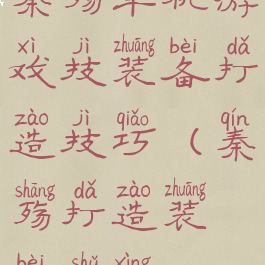 秦殇单机游
xì jì zhuāng bèi dǎ
戏技装备打
zào jì qiǎo qín
造技巧(秦
shāng dǎ zào zhuāng
殇打造装
bèi shǔ xìng